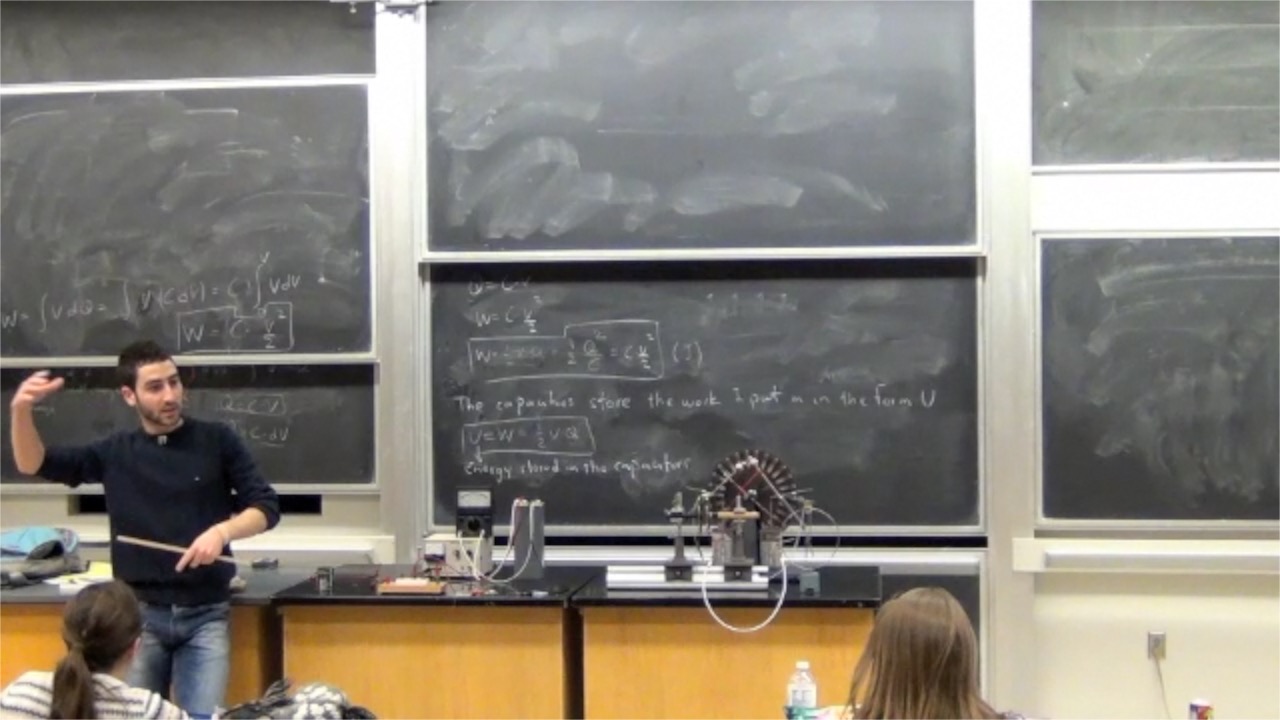 W = ∫ V dQ = ∫ V (C dV) = C ∫ V dV
W = C · V²/2
Q = C · V
= C · dV
Q = C · V
W = C V²/2
W = ½ V · Q = ½ Q²/C = C V²/2 (J)
The capacities store the work I put in in the form U
U = W = ½ V · Q
Energy stored in the capacitors